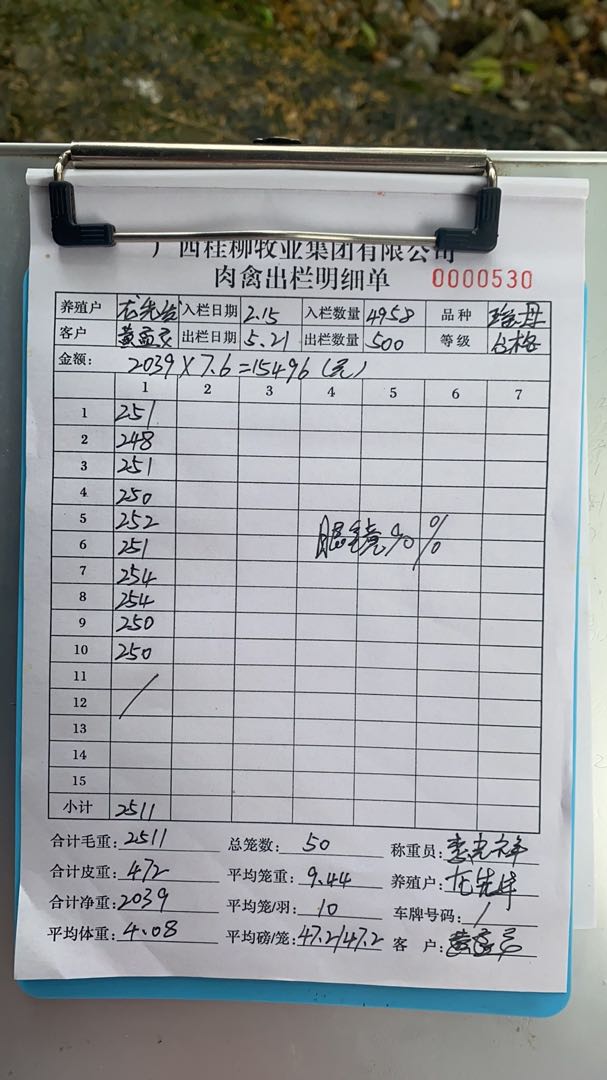 广西桂柳牧业集团有限公司
肉禽出栏明细单 0000530
养殖户 入栏日期 2.15 入栏数量 4958 品种
客户 出栏日期 5.21 出栏数量 500 等级 合格
金额: 2039×7.6=15496(元)
1 2 3 4 5 6 7
1 251
2 248
3 251
4 250
5 252
6 251 眼镜90%
7 254
8 254
9 250
10 250
11
12 /
13
14
15
小计 2511
合计毛重: 2511 总笼数: 50 称重员:
合计皮重: 472 平均笼重: 9.44 养殖户:
合计净重: 2039 平均笼/羽: 10 车牌号码: /
平均体重: 4.08 平均磅/笼: 47.2/47.2 客 户: